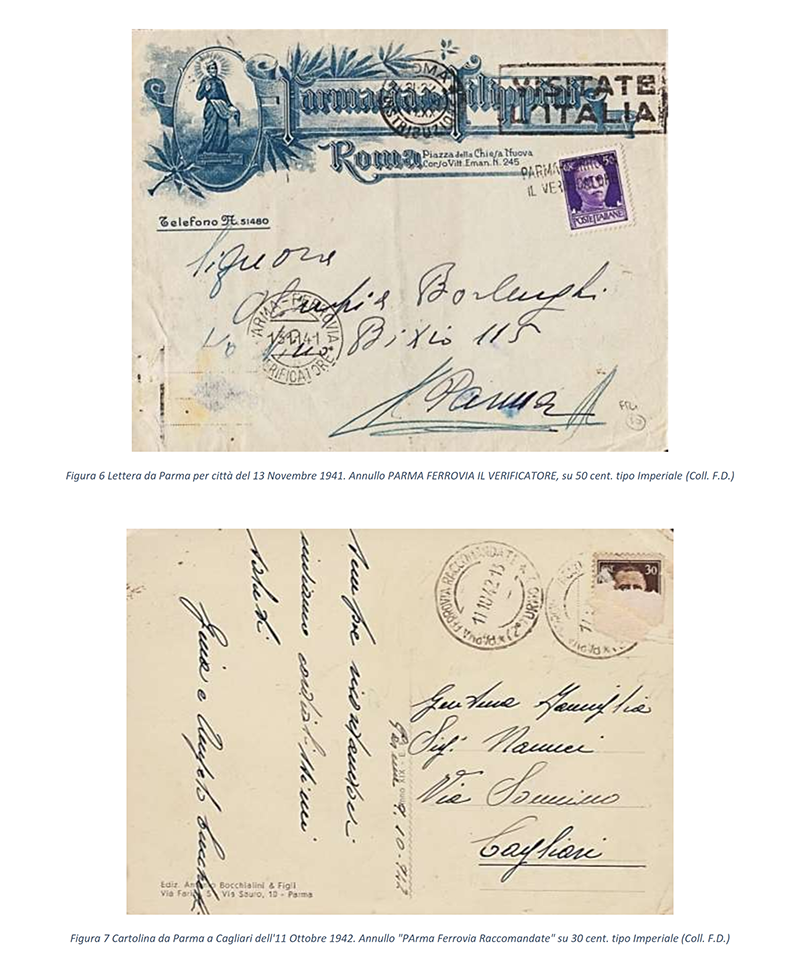 Farmacia Filippini
Roma Piazza della Chiesa Nuova
Corso Vitt. Eman. N. 245
Telefono N. 51480
ROMA
VISITATE
L'ITALIA
PARMA
IL VER
POSTE ITALIANE
Signora
Borlenghi
Bixio 115
Parma
PARMA-FERROVIA
13.11.41
VERIFICATORE
Figura 6 Lettera da Parma per città del 13 Novembre 1941. Annullo PARMA FERROVIA IL VERIFICATORE, su 50 cent. tipo Imperiale (Coll. F.D.)
PARMA FERROVIA RACCOMANDATE
11.10.42.13
30
Sempre ricordandovi
inviamo cordialissimi
saluti
Gentma Famiglia
Sigr. Nannei
Via Sonnino
Cagliari
Ediz. Antonio Bocchialini & Figli
Via Farini, 5 - Via Sauro, 10 - Parma
Figura 7 Cartolina da Parma a Cagliari dell'11 Ottobre 1942. Annullo "PArma Ferrovia Raccomandate" su 30 cent. tipo Imperiale (Coll. F.D.)